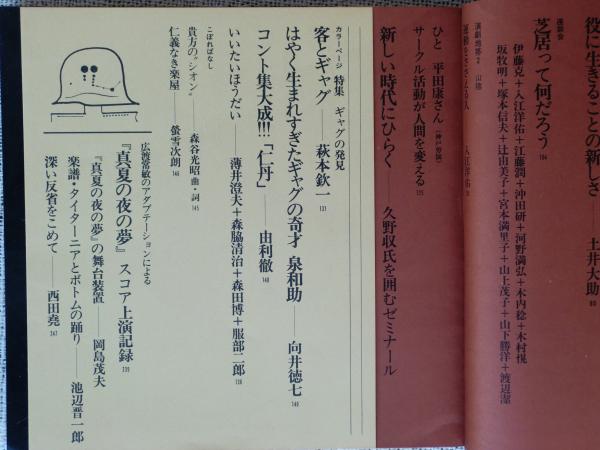 役に生きることの新しさ――土井大助
座談会
芝居って何だろう 104
伊藤克＋入江洋佑＋江藤潤＋沖田研＋河野満弘＋木内稔＋木村悦
坂牧明＋塚本信夫＋辻由美子＋宮本満里子＋山上茂子＋山下勝洋＋渡辺潔
演劇地帯2 山形
運動をささえる人――入江洋佑
ひと 平田康さん(神戸労演)
サークル活動が人間を変える 125
新しい時代にひらく――久野収氏を囲むゼミナール
カラーページ 特集 ギャグの発見
客とギャグ――萩本欽一 131
はやく生まれすぎたギャグの奇才 泉和助――向井徳七 148
コント集大成!!!「仁丹」――由利徹 140
いいたいほうだい――薄井澄夫＋森脇清治＋森田博＋服部二郎 138
こぼればなし
貴方の“シオン”――森谷光昭 曲・詞 145
仁義なき楽屋――螢雪次朗 146
広渡常敏のアダプテーションによる
『真夏の夜の夢』スコア上演記録 239
『真夏の夜の夢』の舞台装置――岡島茂夫
楽譜・タイターニアとボトムの踊り――池辺晋一郎
深い反省をこめて――西田堯 247